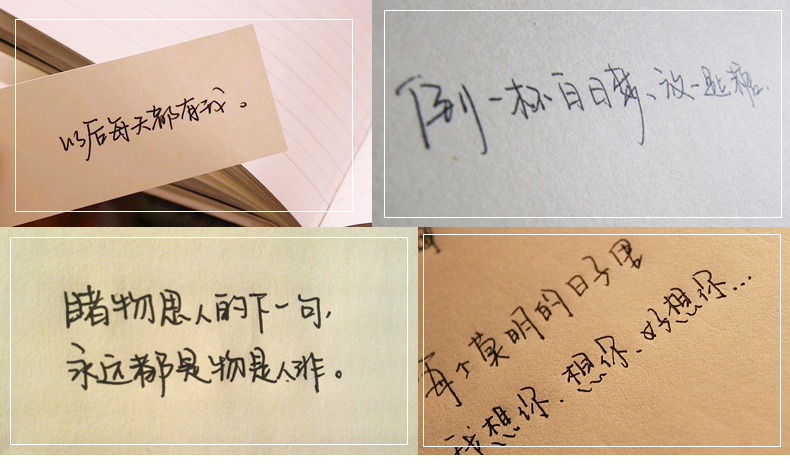 以后每天都有我。
倒一杯白日梦、放一匙糖.
睹物思人的下一句，
永远都是物是人非。
每个莫明的日子里
我想你.想你.好想你...